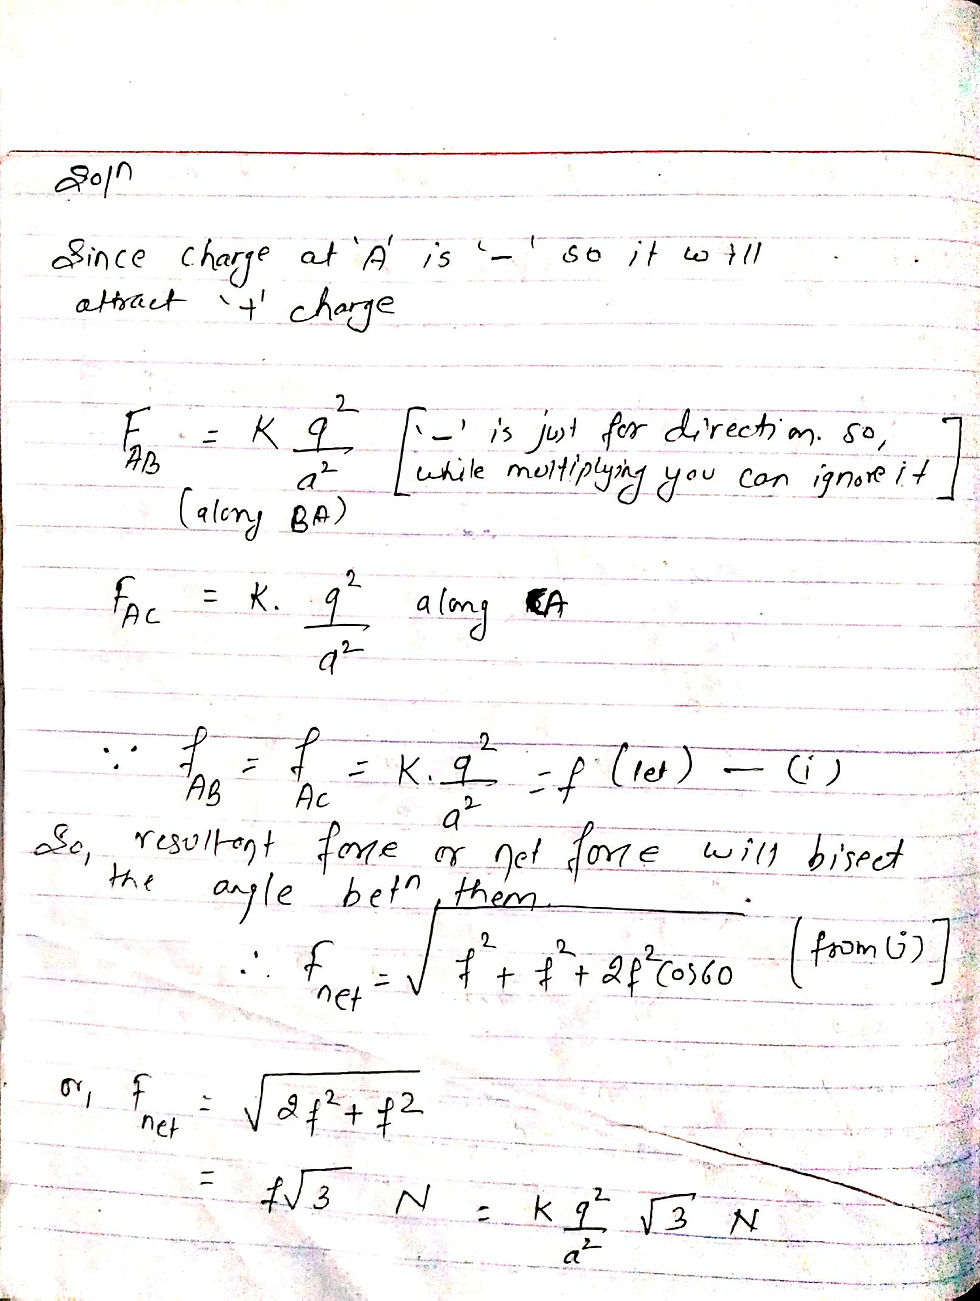 Soln
Since charge at 'A' is '-' so it will
attract '+' charge
F_AB = K q²/a² ['-' is just for direction. so,
while multiplying you can ignore it]
(along BA)
F_AC = K. q²/a² along CA
∵ f_AB = f_AC = K. q²/a² = f (let) — (i)
So, resultant force or net force will bisect
the angle betn them.
∴ f_net = √(f² + f² + 2f² cos60) [from (i)]
or, f_net = √(2f² + f²)
= f√3 N = K q²/a² √3 N